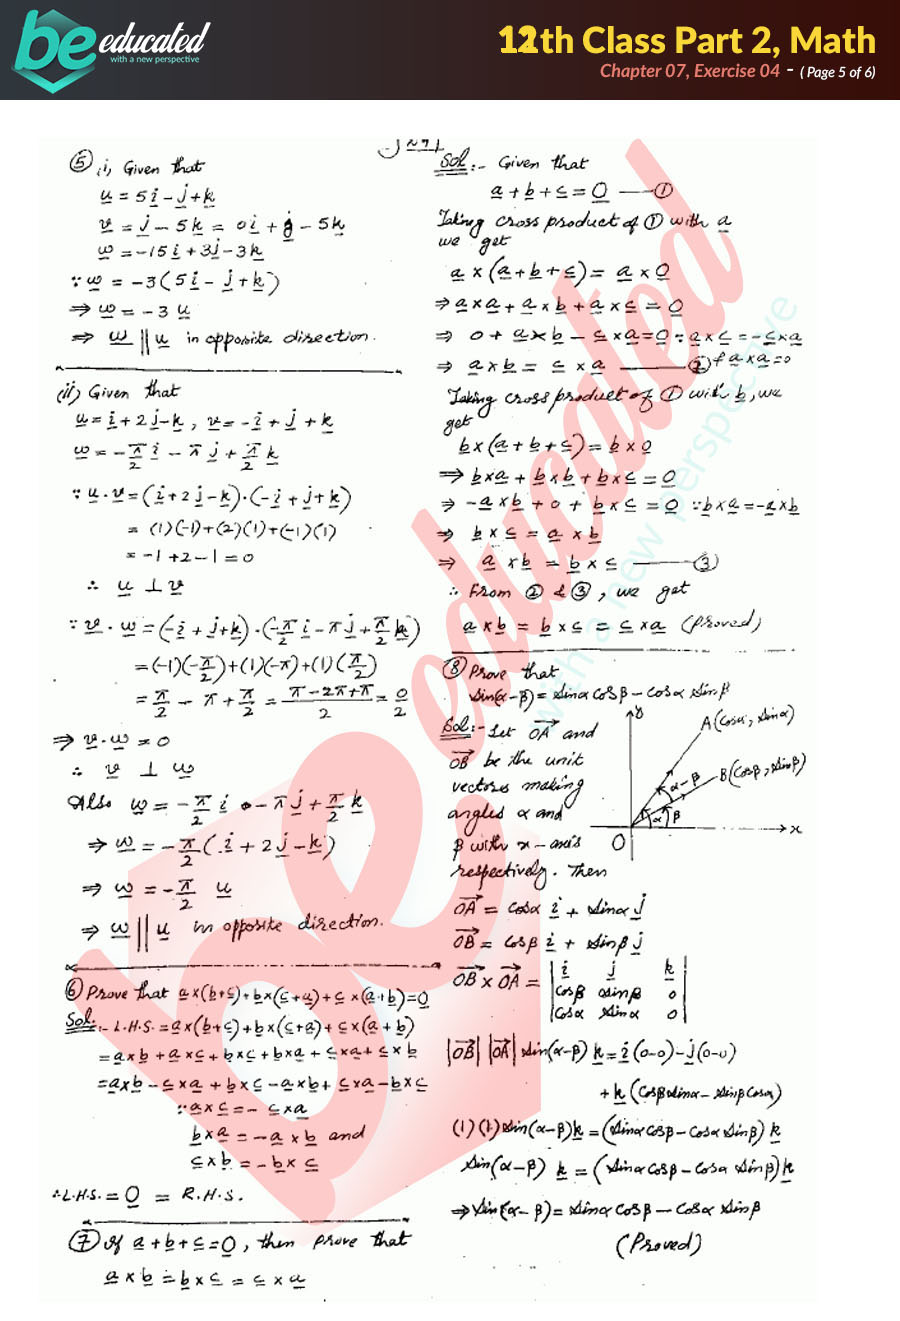 be educated
with a new perspective
12th Class Part 2, Math
Chapter 07, Exercise 04 - ( Page 5 of 6)
⑤ (i) Given that
u = 5i - j + k
v = j - 5k = 0i + j - 5k
w = -15i + 3j - 3k
∵ w = -3(5i - j + k)
⇒ w = -3 u
⇒ w || u in opposite direction.
(ii) Given that
u = i + 2j - k , v = -i + j + k
w = -π/2 i - π j + π/2 k
∵ u . v = (i + 2j - k) . (-i + j + k)
= (1)(-1) + (2)(1) + (-1)(1)
= -1 + 2 - 1 = 0
∴ u ⊥ v
∵ v . w = (-i + j + k) . (-π/2 i - πj + π/2 k)
= (-1)(-π/2) + (1)(-π) + (1)(π/2)
= π/2 - π + π/2 = (π - 2π + π)/2 = 0/2
⇒ v . w = 0
∴ v ⊥ w
Also w = -π/2 i - π j + π/2 k
⇒ w = -π/2 (i + 2j - k)
⇒ w = -π/2 u
⇒ w || u in opposite direction.
⑥ Prove that a×(b+c) + b×(c+a) + c×(a+b) = 0
Sol:- L.H.S. = a×(b+c) + b×(c+a) + c×(a+b)
= a×b + a×c + b×c + b×a + c×a + c×b
= a×b - c×a + b×c - a×b + c×a - b×c
∵ a×c = - c×a
b×a = -a×b and
c×b = -b×c
∴ L.H.S. = 0 = R.H.S.
⑦ If a+b+c = 0, then prove that
a×b = b×c = c×a
Sol:- Given that
a+b+c = 0 —①
Taking cross product of ① with a
we get
a×(a+b+c) = a×0
⇒ a×a + a×b + a×c = 0
⇒ 0 + a×b - c×a = 0 ∵ a×c = -c×a
⇒ a×b = c×a —② & a×a=0
Taking cross product of ① with b, we
get
b×(a+b+c) = b×0
⇒ b×a + b×b + b×c = 0
⇒ -a×b + 0 + b×c = 0 ∵ b×a = -a×b
⇒ b×c = a×b
⇒ a×b = b×c —③
∴ From ② & ③, we get
a×b = b×c = c×a (Proved)
⑧ Prove that
Sin(α-β) = Sinα Cosβ - Cosα Sinβ
Sol:- Let OA and
OB be the unit
vectors making
angles α and
β with x-axis
respectively. Then
y
A(Cosα, Sinα)
B(Cosβ, Sinβ)
α-β
α
β
O
x
OA = Cosα i + Sinα j
OB = Cosβ i + Sinβ j
OB × OA = | i j k |
| Cosβ Sinβ 0 |
| Cosα Sinα 0 |
|OB| |OA| Sin(α-β) k = i(0-0) - j(0-0)
+ k(Cosβ Sinα - Sinβ Cosα)
(1)(1) Sin(α-β) k = (Sinα Cosβ - Cosα Sinβ) k
Sin(α-β) k = (Sinα Cosβ - Cosα Sinβ) k
⇒ Sin(α-β) = Sinα Cosβ - Cosα Sinβ
(Proved)
be educated
with a new perspective